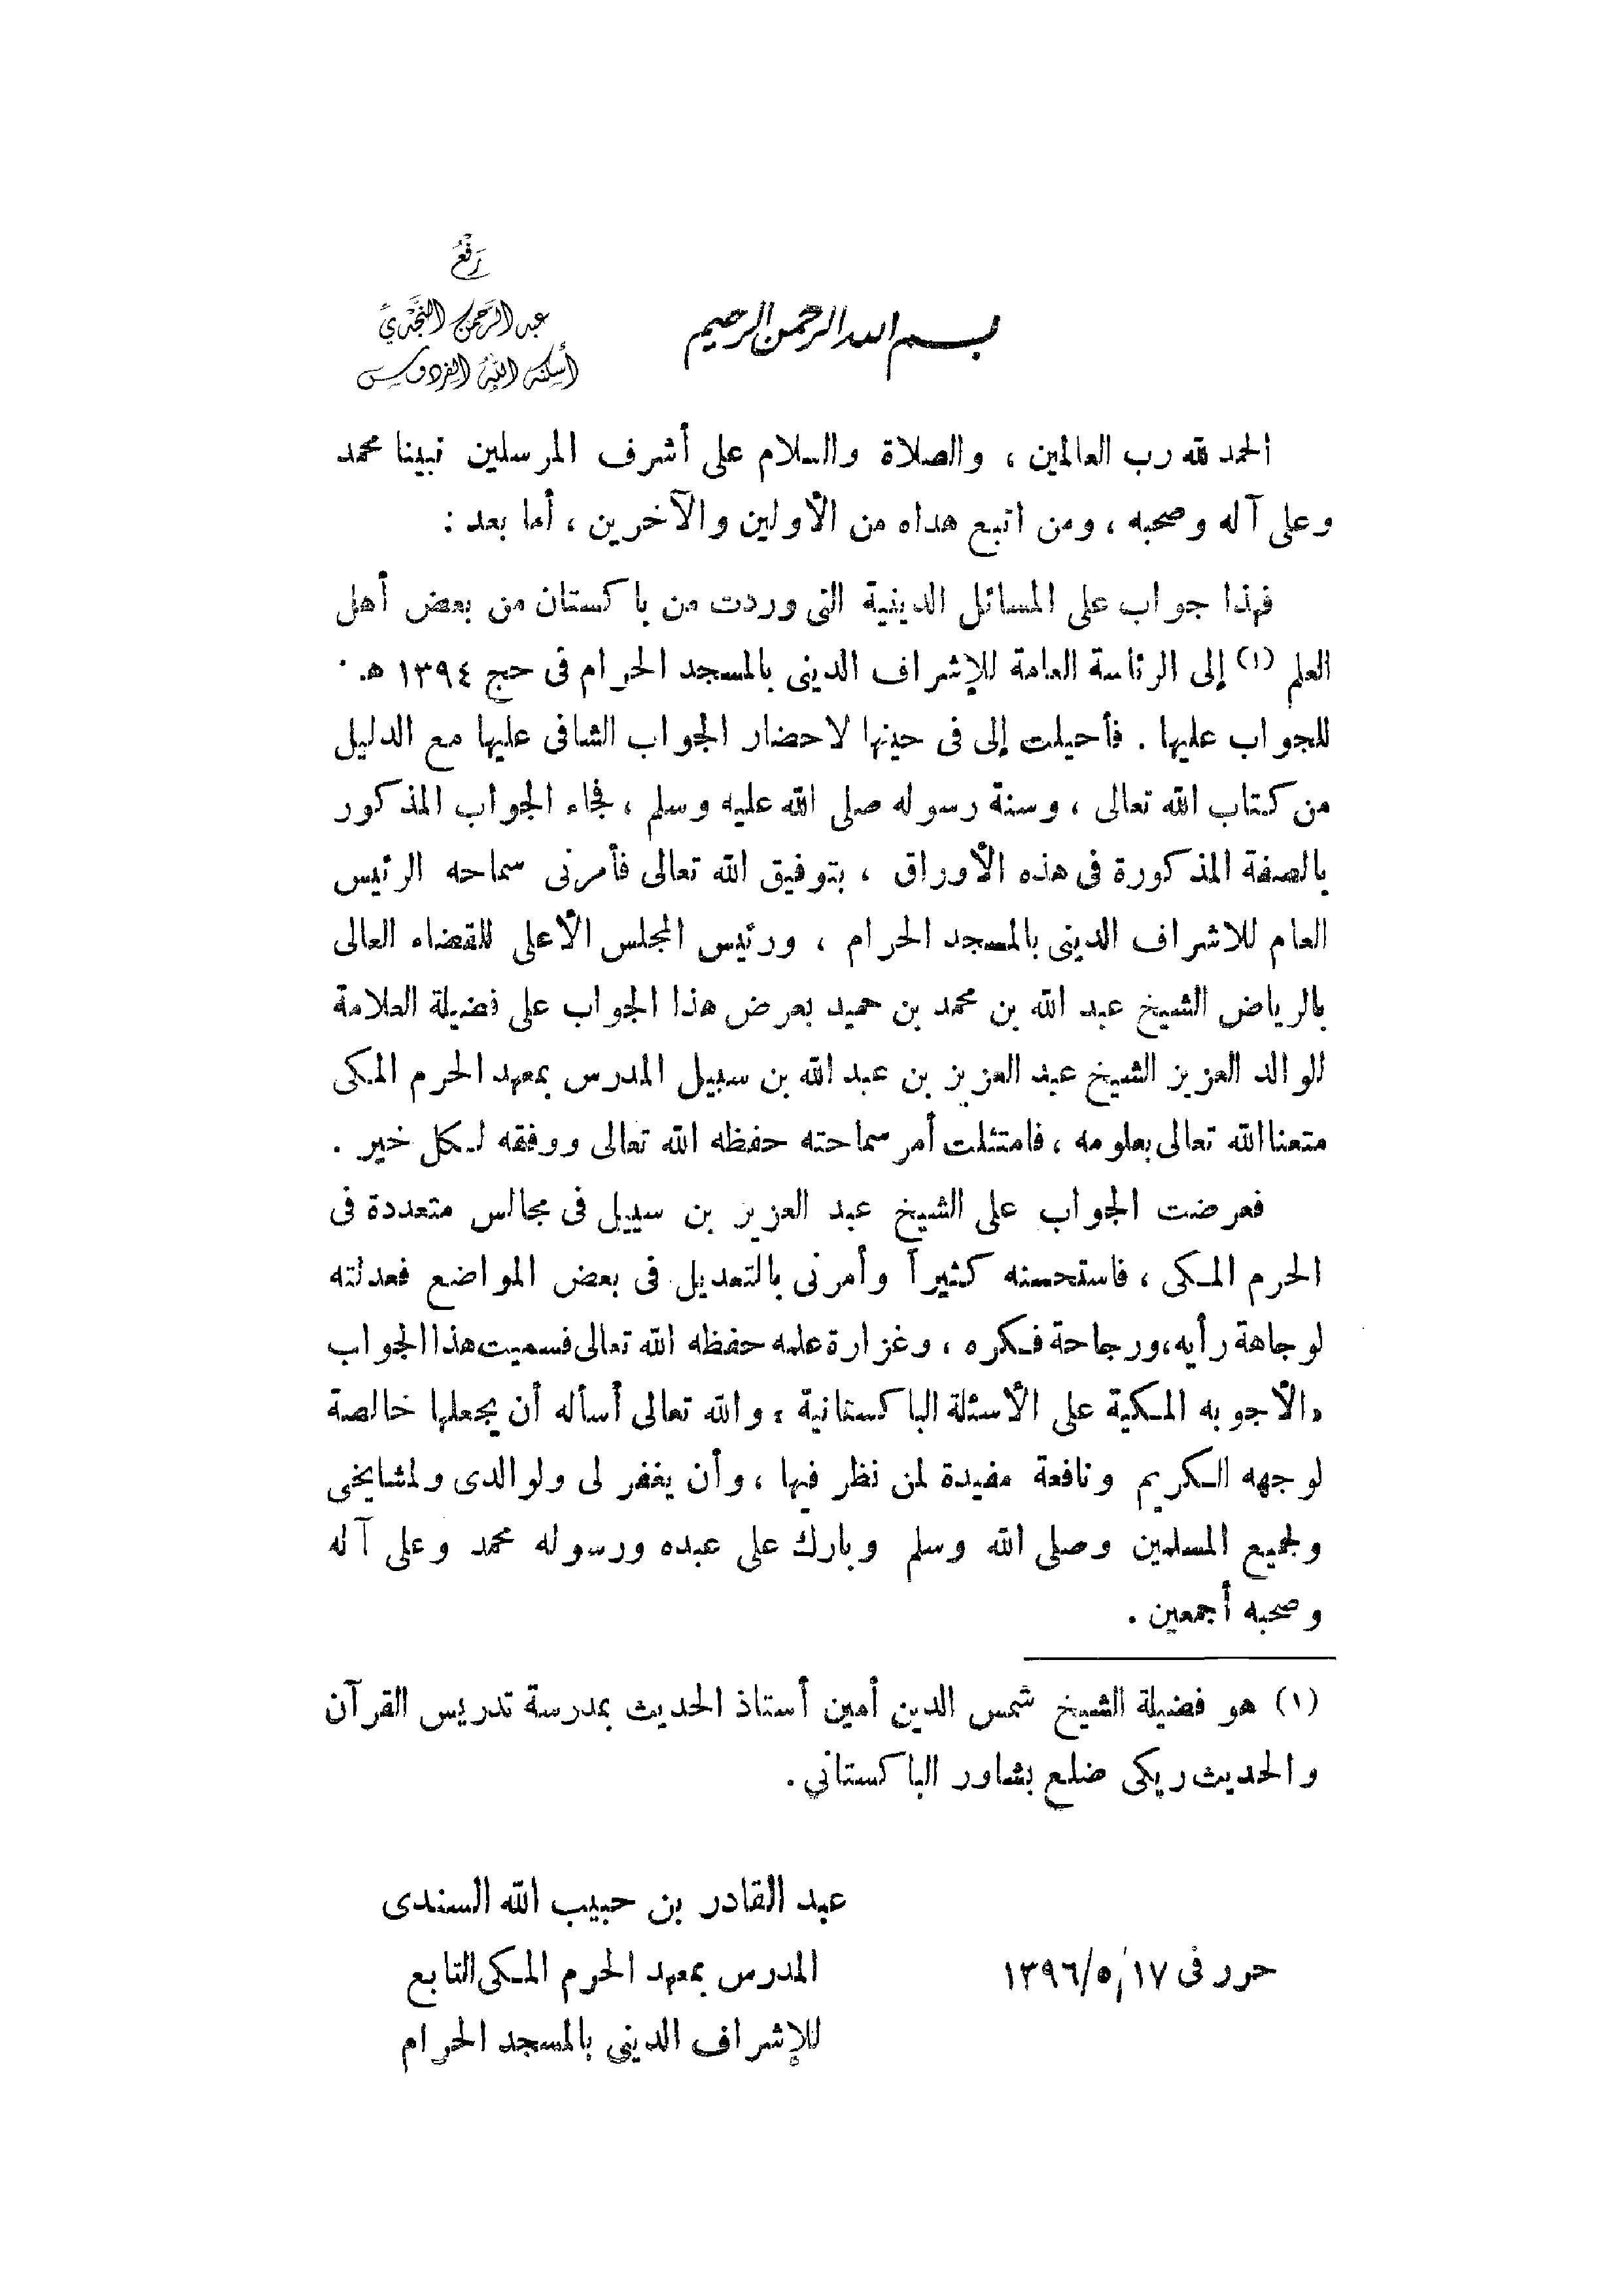 رَفْعُ
عبد الرَّحمن النَّجْدِيِّ
أسكنه اللهُ الفردوس
بسم الله الرحمن الرحيم
الحمد لله رب العالمين ، والصلاة والسلام على أشرف المرسلين نبينا محمد
وعلى آله وصحبه ، ومن اتبع هداه من الأولين والآخرين ، أما بعد :
فهذا جواب على المسائل الدينية التى وردت من باكستان من بعض أهل
العلم (١) إلى الرئاسة العامة للإشراف الدينى بالمسجد الحرام فى حج ١٣٩٤ هـ .
للجواب عليها . فأحيلت إلى فى حينها لاحضار الجواب الشافى عليها مع الدليل
من كتاب الله تعالى ، وسنة رسوله صلى الله عليه وسلم ، فجاء الجواب المذكور
بالصفة المذكورة فى هذه الأوراق ، بتوفيق الله تعالى فأمرنى سماحه الرئيس
العام للاشراف الدينى بالمسجد الحرام ، ورئيس المجلس الأعلى للقضاء العالى
بالرياض الشيخ عبد الله بن محمد بن حميد بعرض هذا الجواب على فضيلة العلامة
الوالد العزيز الشيخ عبد العزيز بن عبد الله بن سبيل المدرس بمعهد الحرم المكى
متعنا الله تعالى بعلومه ، فامتثلت أمر سماحته حفظه الله تعالى ووفقه لكل خير .
فعرضت الجواب على الشيخ عبد العزيز بن سبيل فى مجالس متعددة فى
الحرم المكى ، فاستحسنه كثيراً وأمرنى بالتعديل فى بعض المواضع فعدلته
لوجاهة رأيه، ورجاحة فكره ، وغزارة علمه حفظه الله تعالى فسميت هذا الجواب
«الأجوبه المكية على الأسئلة الباكستانية ، والله تعالى أسأله أن يجعلها خالصة
لوجهه الكريم ونافعة مفيدة لمن نظر فيها ، وأن يغفر لى ولوالدى ولمشايخى
ولجميع المسلمين وصلى الله وسلم وبارك على عبده ورسوله محمد وعلى آله
وصحبه أجمعين .
(١) هو فضيلة الشيخ شمس الدين أمين أستاذ الحديث بمدرسة تدريس القرآن
والحديث ريكى ضلع بشاور الباكستاني .
عبد القادر بن حبيب الله السندى
حرر فى ١٧/٥/١٣٩٦ المدرس بمعهد الحرم المكى التابع
للإشراف الدينى بالمسجد الحرام